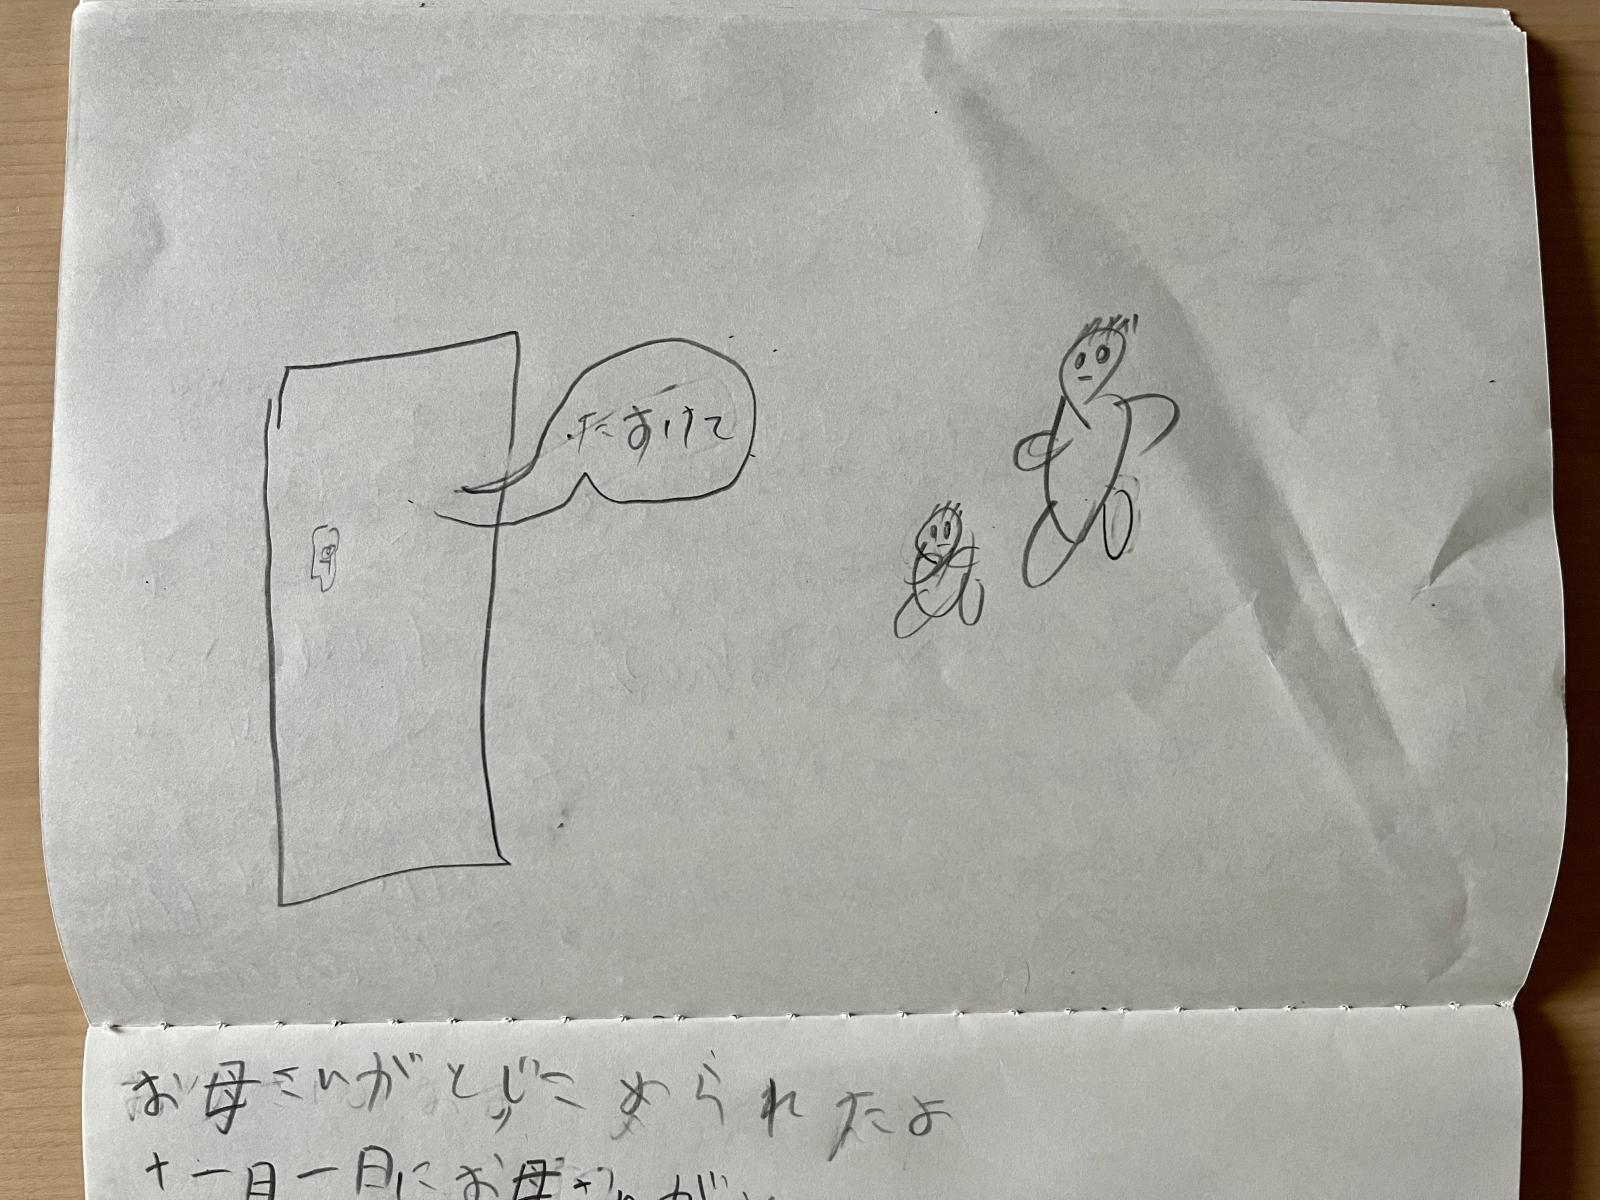 たすけて
お母さんがとじこめられたよ
十一月一日にお母さんが